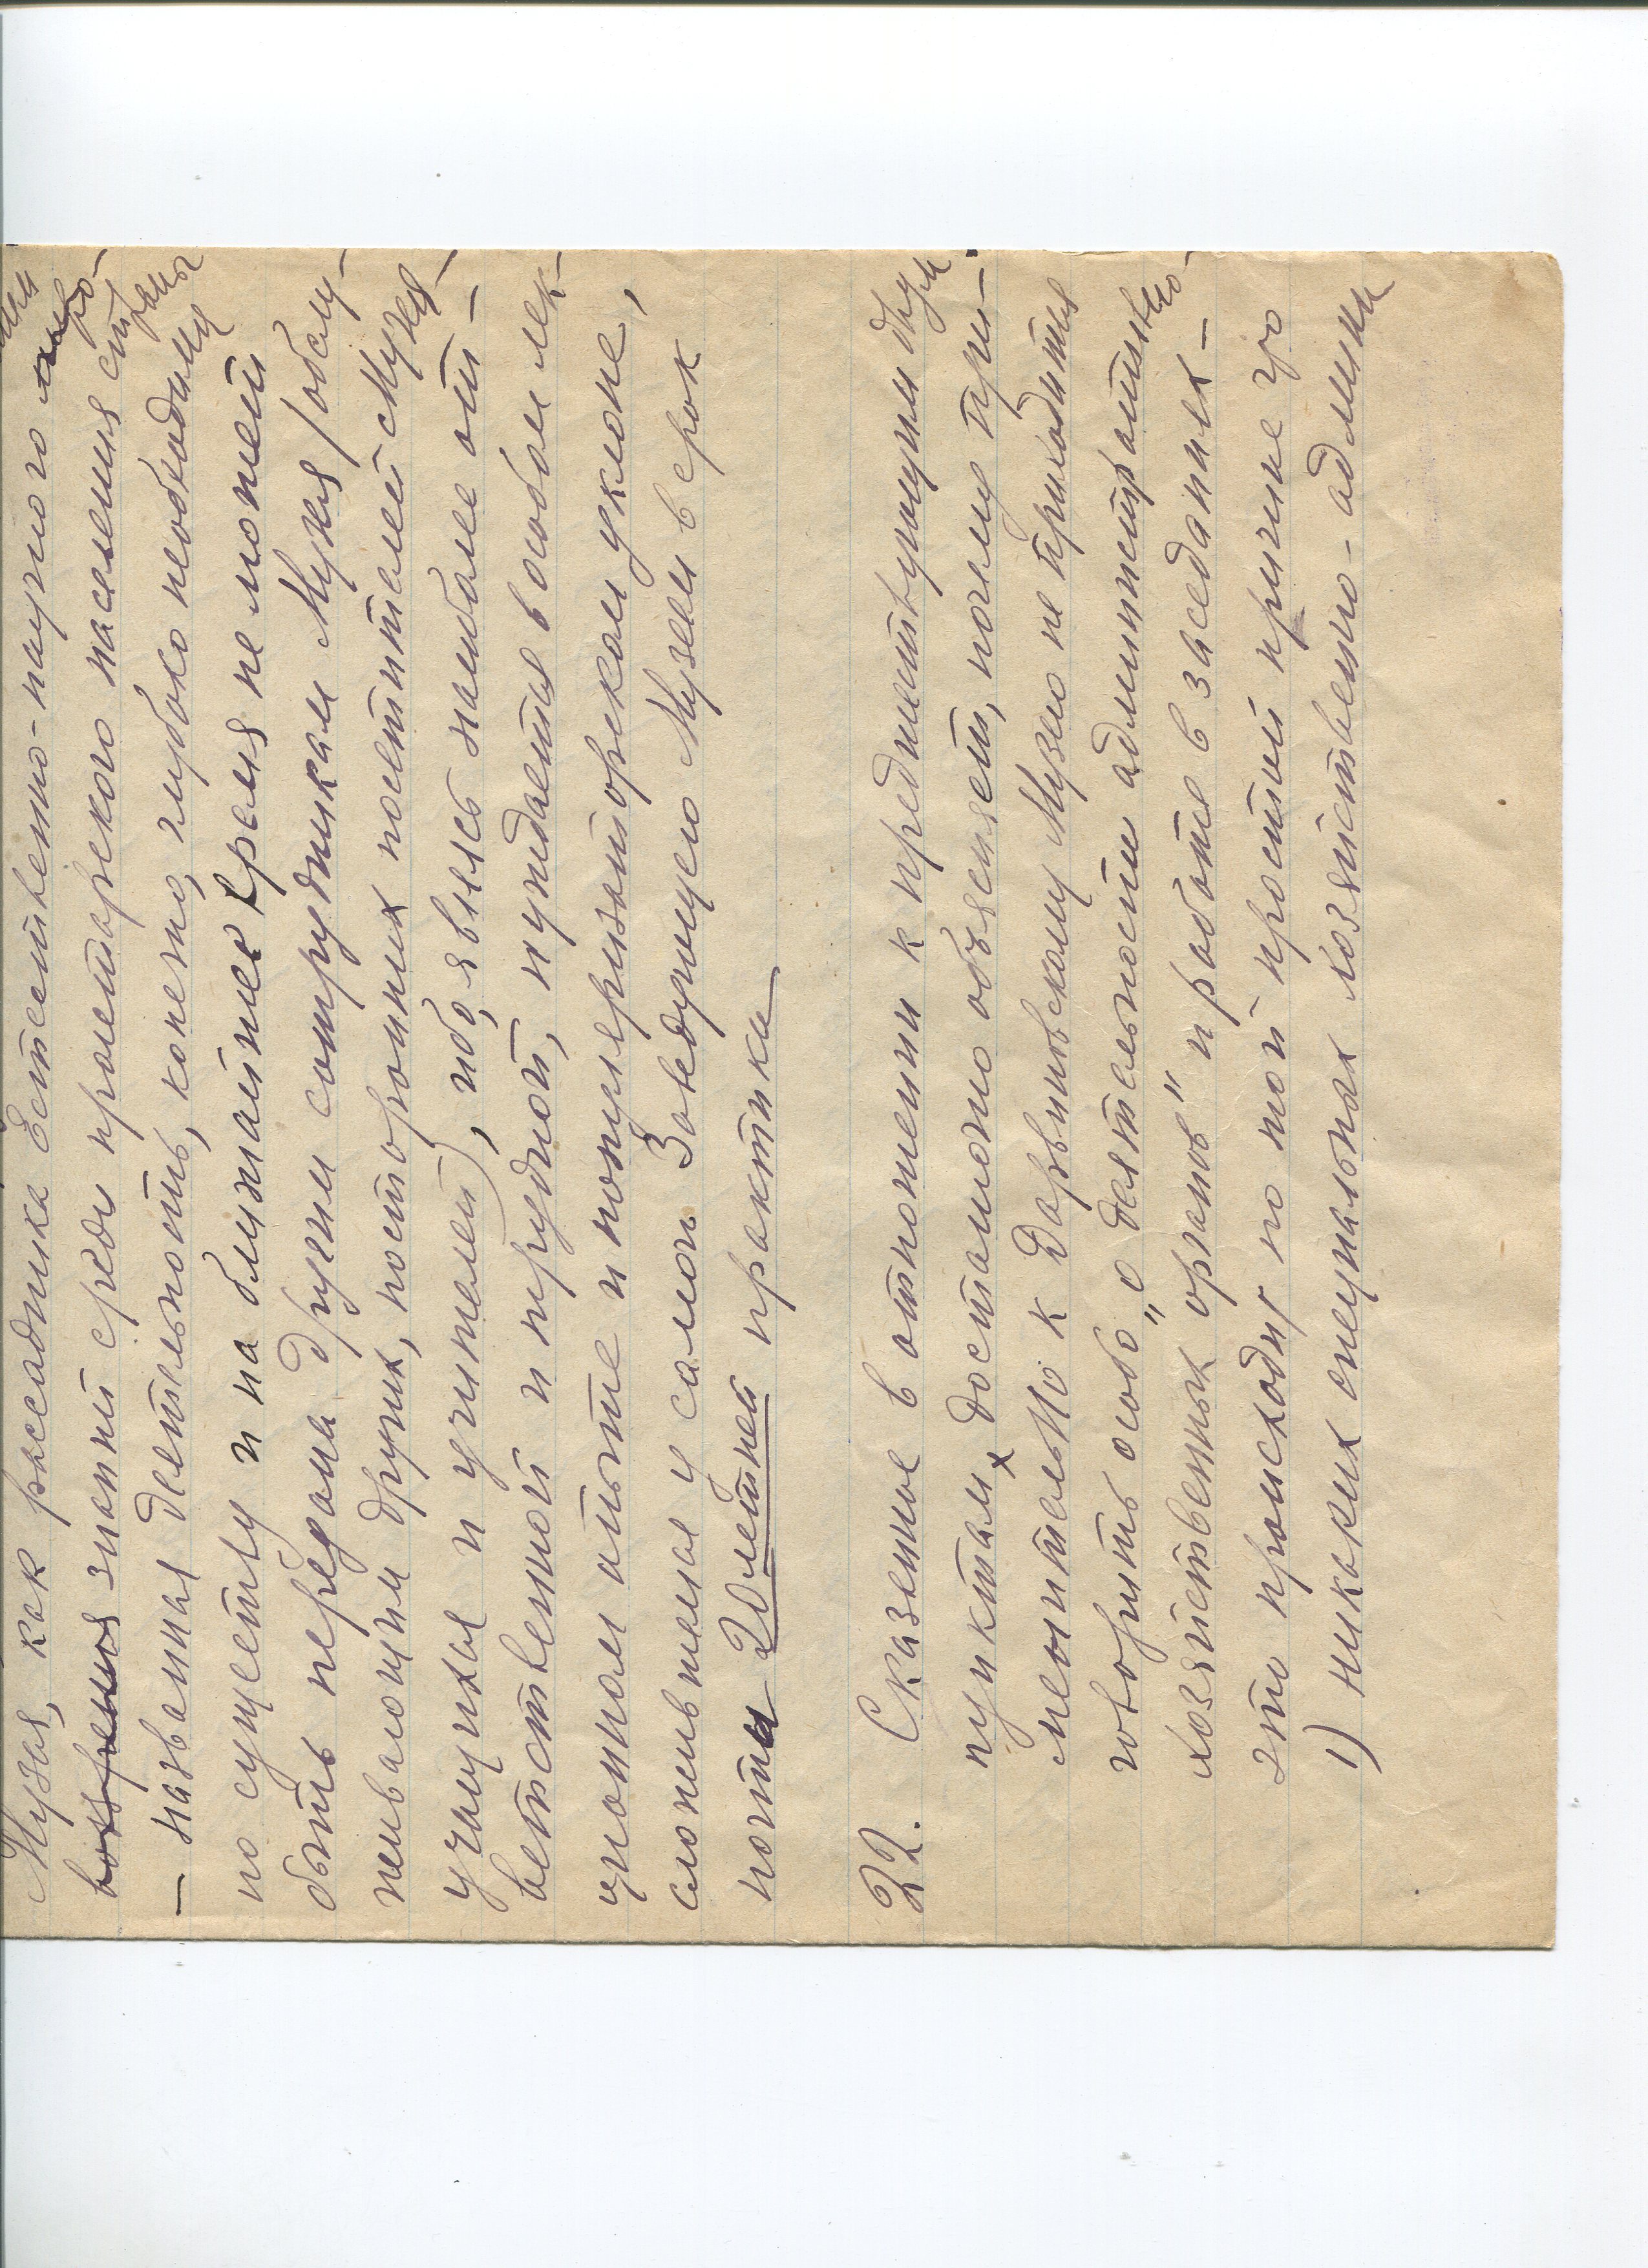 Музея, как рассадника Естественно-научного миро-
воззрения знаний среди пролетарского населения страны
— названная деятельность, конечно, глубоко необходима
по существу и на ближайшее время не может
быть передана другим сотрудникам Музея (обслу-
живающим других, посторонних посетителей Музея
учащихся и учителей), ибо, явяясь наиболее от-
ветственной и трудной, нуждается в особом лек-
ционном опыте и популяризаторском уклоне,
сложившемся у самого Заведующего Музеем в срок
почти 20 летней практики
22. Сказанное в отношении к предшествующим двум
пунктам достаточно объясняет, почему при-
менительно к Дарвиновскому Музею не приходится
говорить особо „о деятельности административно-
хозяйственных органов" и работе в заседаниях —
это происходит по той простой причине что
1) никаких специальных хозяйственно-админи